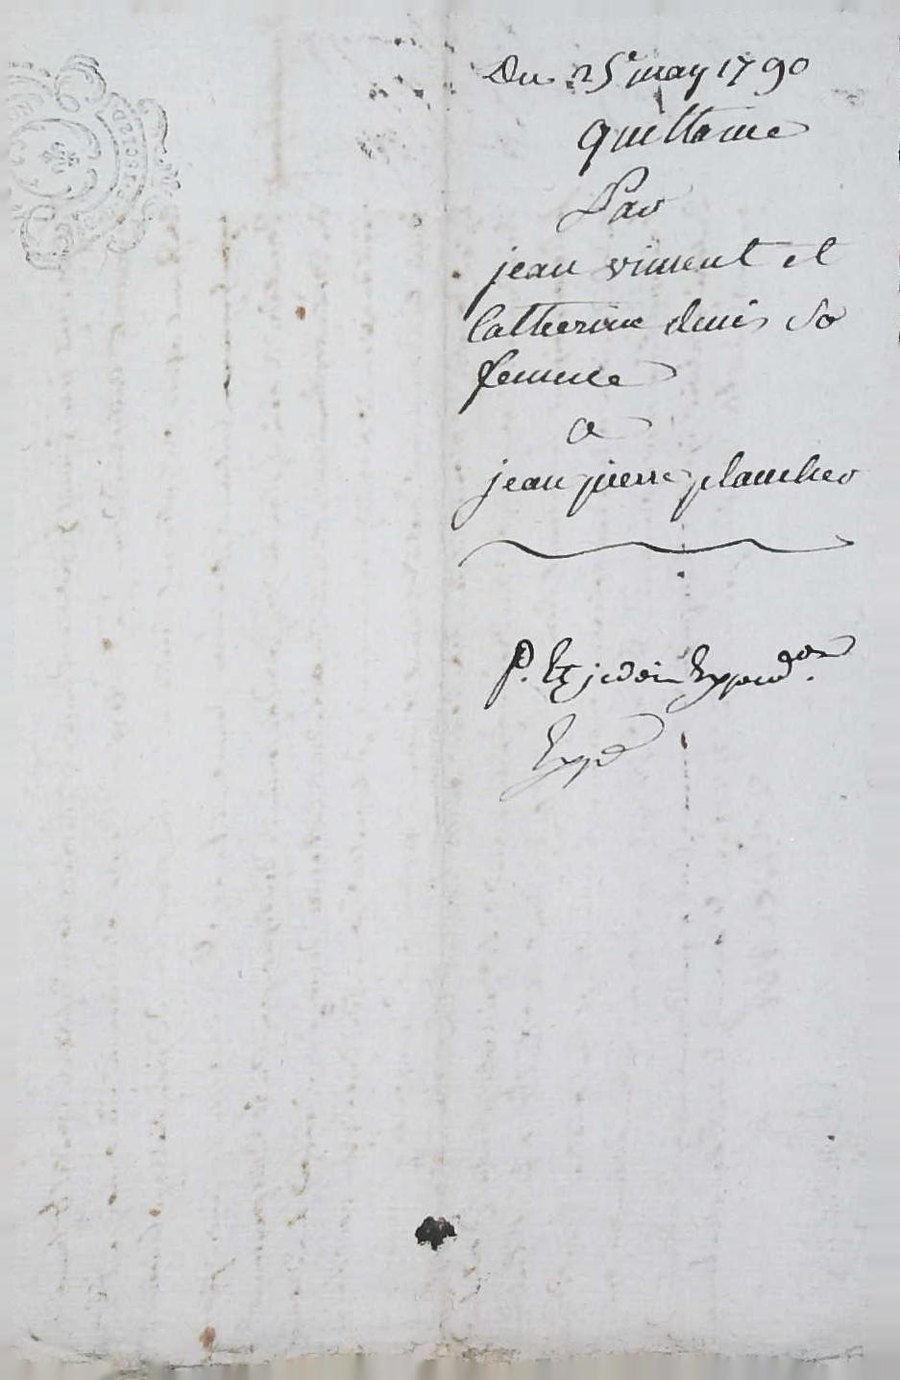 Du 25e may 1790
quittance
Par
jean vincent et
Catherine denis sa
femme
a
jean pierre plancher
P.
Expé